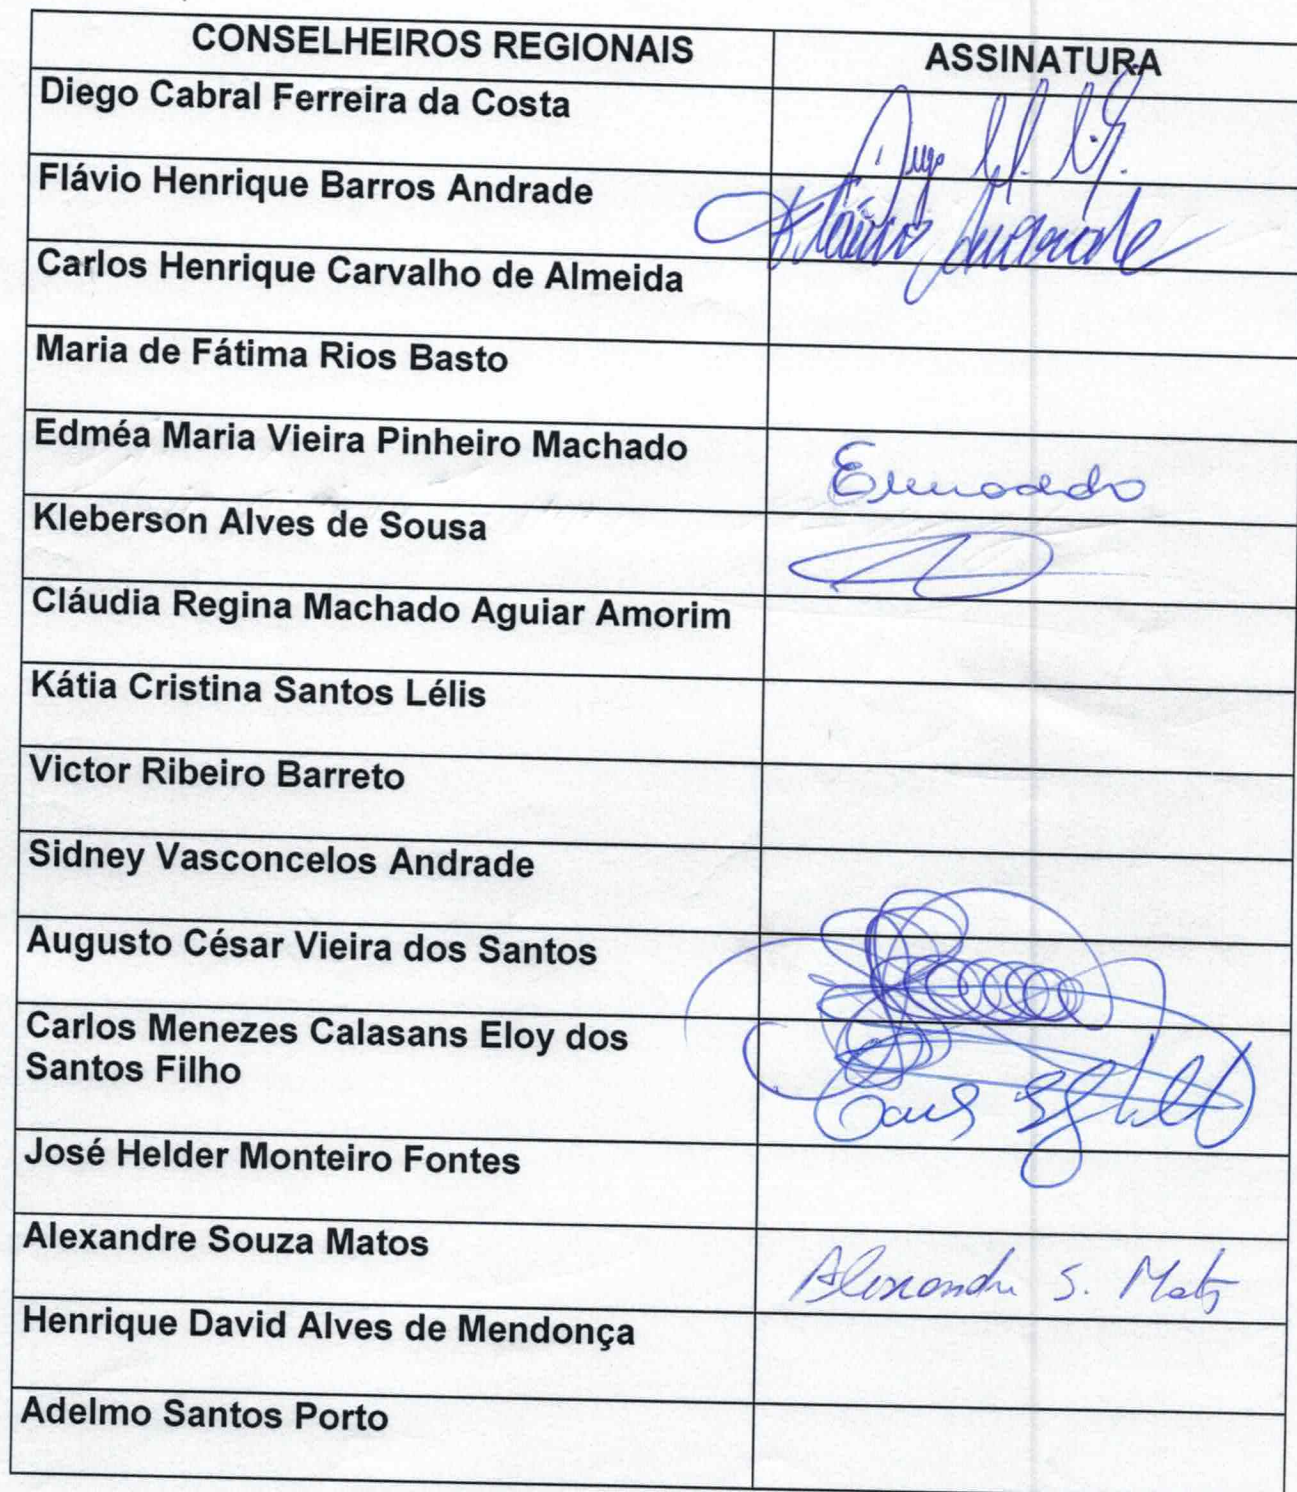 CONSELHEIROS REGIONAIS ASSINATURA
Diego Cabral Ferreira da Costa
Flávio Henrique Barros Andrade Flávio Andrade
Carlos Henrique Carvalho de Almeida
Maria de Fátima Rios Basto
Edméa Maria Vieira Pinheiro Machado
Kleberson Alves de Sousa
Cláudia Regina Machado Aguiar Amorim
Kátia Cristina Santos Lélis
Victor Ribeiro Barreto
Sidney Vasconcelos Andrade
Augusto César Vieira dos Santos
Carlos Menezes Calasans Eloy dos
Santos Filho
José Helder Monteiro Fontes
Alexandre Souza Matos Alexandre S. Matos
Henrique David Alves de Mendonça
Adelmo Santos Porto